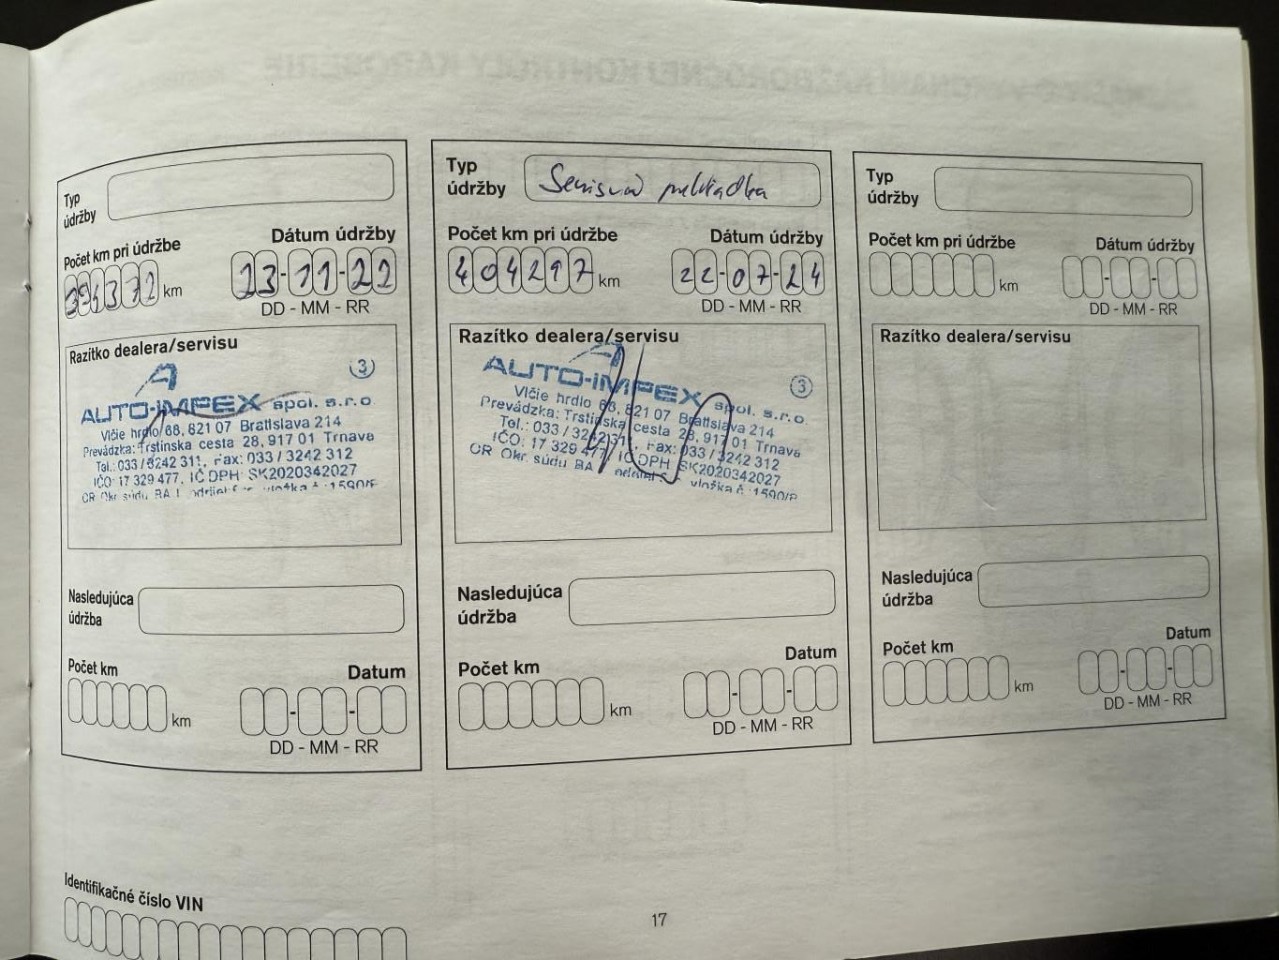 Typ
údržby
Počet km pri údržbe
Dátum údržby
394372 km
23-11-22
DD - MM - RR
Razítko dealera/servisu
3
AUTO-IMPEX spol. s.r.o.
Vlčie hrdlo 68, 821 07 Bratislava 214
Prevádzka: Trstínska cesta 28, 917 01 Trnava
Tel.: 033 / 3242 311, Fax: 033 / 3242 312
IČO: 17 329 477, IČ DPH: SK2020342027
OR Okr. súdu BA I vložka č. 1590/B
Nasledujúca
údržba
Počet km
Datum
km
DD - MM - RR
Typ
údržby
Servisná prehliadka
Počet km pri údržbe
Dátum údržby
404297 km
22-07-24
DD - MM - RR
Razítko dealera/servisu
3
AUTO-IMPEX spol. s.r.o.
Vlčie hrdlo 68, 821 07 Bratislava 214
Prevádzka: Trstínska cesta 28, 917 01 Trnava
Tel.: 033 / 3242 311, Fax: 033 / 3242 312
IČO: 17 329 477, IČ DPH: SK2020342027
OR Okr. súdu BA vložka č. 1590/B
Nasledujúca
údržba
Počet km
Datum
km
DD - MM - RR
Typ
údržby
Počet km pri údržbe
Dátum údržby
km
DD - MM - RR
Razítko dealera/servisu
Nasledujúca
údržba
Počet km
Datum
km
DD - MM - RR
Identifikačné číslo VIN
17